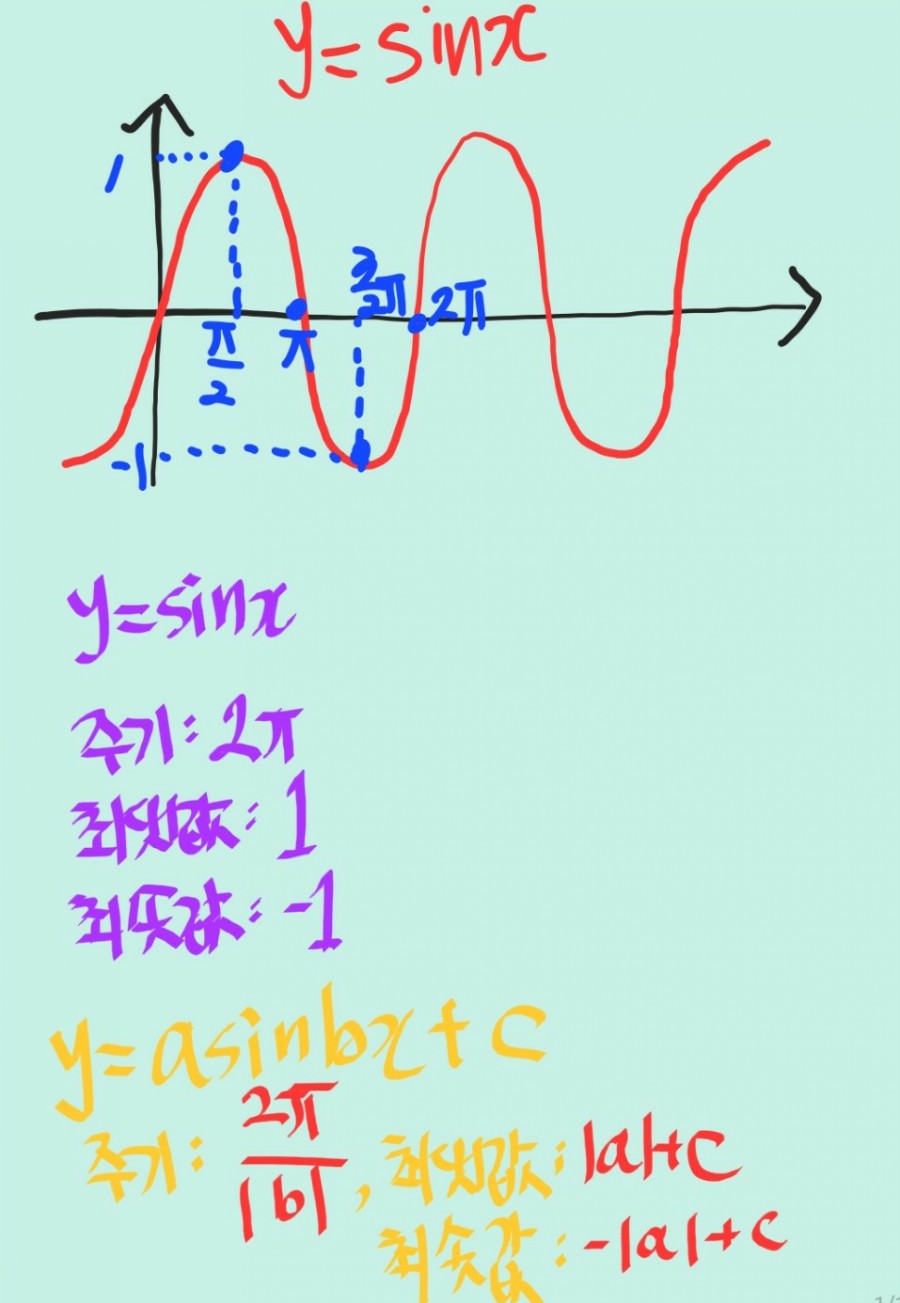 y=sinx
1
3/2π
2π
π/2
π
-1
y=sinx
주기: 2π
최댓값: 1
최솟값: -1
y=asinbx+c
주기: 2π/|b|, 최댓값: |a|+c
최솟값: -|a|+c